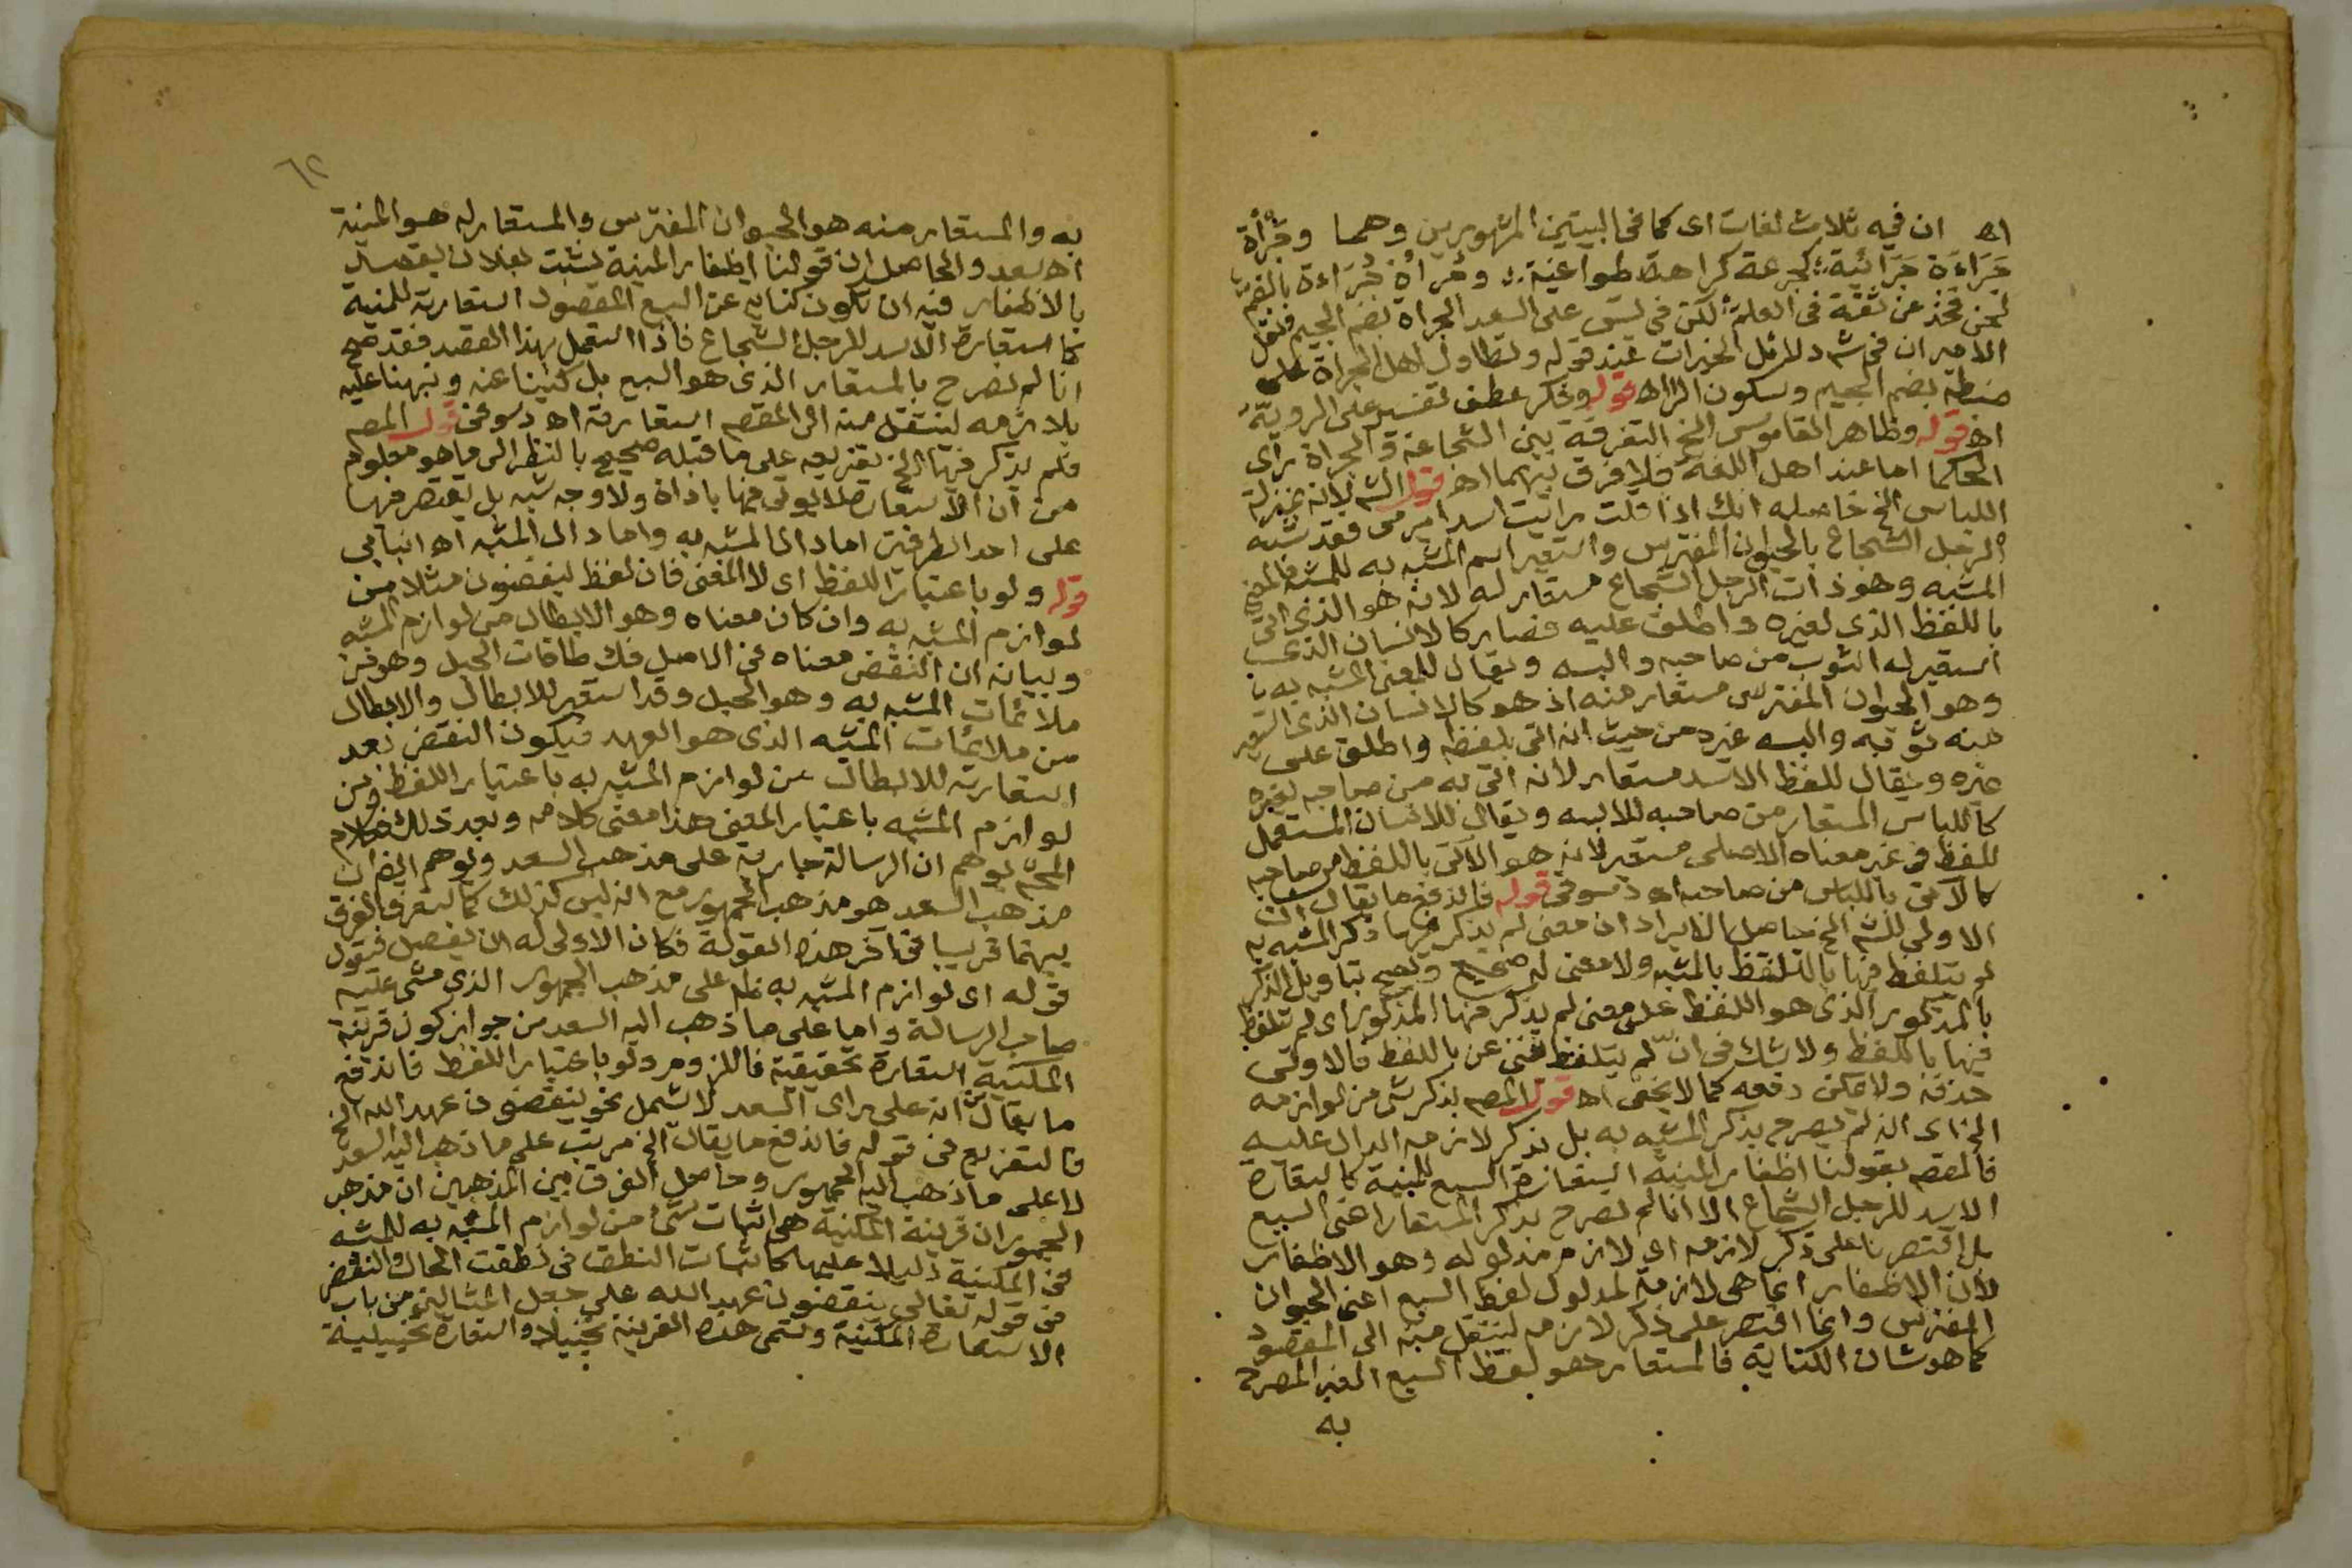 اه ان فيه ثلاث لغات اى كما فى البيتين المشهورين وهما وجرأة
جراءة جرائية كجرعة كراهة طواعية وجرأة جراءة بالضم
نحن فخذ عن ثقة فى العلم لكن فى لس على السعد الجراة بضم الجيم ونقل
الامير ان فى ش دلائل الخيرات عند قوله وتطاول اهل الجراة على
ضبطه بضم الجيم وسكون الرا اه قوله وفكر عطف تفسير على الروية
اه قوله وظاهر القاموس الخ التفرقة بين الشجاعة والجراة راى
الحكما اما عند اهل اللغة فلا فرق بينهما اه قوله الش لانه بمنزلة
اللباس الخ حاصله انك اذا قلت رايت اسدا يرمى فقد شبه
الرجل الشجاع بالحيوان المفترس واستعير اسم المشبه به للمشبه فالمعنى
المشبه وهو ذات الرجل الشجاع مستعار له لانه هو الذى اتى
باللفظ الذى لغيره واطلق عليه فصار كالانسان الذى
استعير له الثوب من صاحبه والبسه ويقال للمعنى المشبه به
وهو الحيوان المفترس مستعار منه اذ هو كالانسان الذى استعير
منه ثوبه والبسه غيره من حيث انه اتى بلفظه واطلق على
غيره ويقال للفظ الاسد مستعار لانه اتى به من صاحبه لغيره
كاللباس المستعار من صاحبه للابسه ويقال للانسان المستعمل
للفظ فى غير معناه الاصلى مستعير لانه هو الاتى باللفظ من صاحبه
كالاتى باللباس من صاحبه اه دسوقى قوله فاندفع ما يقال ان
الاولى للش الخ حاصل الايراد ان معنى لم يذكر فيها ذكر المشبه به
لم يتلفظ فيها بالتلفظ بالمشبه ولا معنى له صحيح ويصح بتاويل الذكر
بالمذكور الذى هو اللفظ على معنى لم يذكر فيها المذكور اى لم يتلفظ
فيها باللفظ ولا شك فى ان لم يتلفظ مغنى عن باللفظ فالاولى
حذفه ولا يمكن دفعه كما لا يخفى اه قوله المصم بذكر شى من لوازمه
الخ اى انه لم يصرح بذكر المشبه به بل بذكر لازمه الدال عليه
فالمقصم بقولنا اظفار المنية استعارة السبع للمنية كاستعارة
الاسد للرجل الشجاع الا انا لم نصرح بذكر المستعار اعنى السبع
بل اقتصرنا على ذكر لازمه اى لازم مدلوله وهو الاظفار
لان الاظفار انما هى لازمة لمدلول لفظ السبع اعنى الحيوان
المفترس وانما اقتصر على ذكر لازمه لينتقل منه الى المقصود
كما هو شان الكناية فالمستعار هو لفظ السبع الغير المصرح
به
٦٢
به والمستعار منه هو الحيوان المفترس والمستعار له هو المنية
اه سعد والحاصل ان قولنا اظفار المنية نشبت بفلان يقصد
بالاظفار فيه ان تكون كناية عن السبع المقصود استعارته للمنية
كاستعارة الاسد للرجل الشجاع فاذا استعمل بهذا القصد فقد صح
انا لم نصرح بالمستعار الذى هو السبع بل كنينا عنه ونبهنا عليه
بلازمه لينتقل منه الى المقصم استعارته اه دسوقى قوله المصم
فلم يذكر فيها الخ تفريعه على ما قبله صحيح بالنظر الى ما هو معلوم
من ان الاستعارة لا يوتى فيها باداة ولا وجه شبه بل يقتصر فيها
على احد الطرفين اما دال المشبه به واما دال المشبه اه انبابى
قوله ولو باعتبار اللفظ اى لا المعنى فان لفظ ينقضون مثلا من
لوازم المشبه به وان كان معناه وهو الابطال من لوازم المشبه
وبيانه ان النقض معناه فى الاصل فك طاقات الحبل وهو من
ملائمات المشبه به وهو الحبل وقد استعير للابطال والابطال
من ملايمات المشبه الذى هو العهد فيكون النقض بعد
استعارته للابطال من لوازم المشبه به باعتبار اللفظ ومن
لوازم المشبه باعتبار المعنى هذا معنى كلامه وبعد ذلك فكلام
المحشى يوهم ان الرسالة جارية على مذهب السعد ويوهم ايضا ان
مذهب السعد هو مذهب الجمهور مع انه ليس كذلك كما ستعرف الفرق
بينهما قريبا فى آخر هذه القولة فكان الاولى له ان يفصل فيقول
قوله اى لوازم المشبه به ظم على مذهب الجمهور الذى مشى عليه
صاحب الرسالة واما على ما ذهب اليه السعد من جواز كون قرينة
المكنية استعارة تحقيقية فاللزوم ولو باعتبار اللفظ فاندفع
ما يقال انه على راى السعد لا يشمل نحو ينقضون عهد الله الخ
فالتفريع فى قوله فاندفع ما يقال الخ مرتب على ما ذهب اليه السعد
لا على ما ذهب اليه الجمهور وحاصل الفرق بين المذهبين ان مذهب
الجمهور ان قرينة المكنية هى اثبات شئ من لوازم المشبه به للمشبه
فى المكنية دليلا عليها كاثبات النطق فى نطقت الحال والنقض
فى قوله تعالى ينقضون عهد الله على جعل المثالين من باب
الاستعارة المكنية وتسمى هذه القرينة تخييلا واستعارة تخييلية